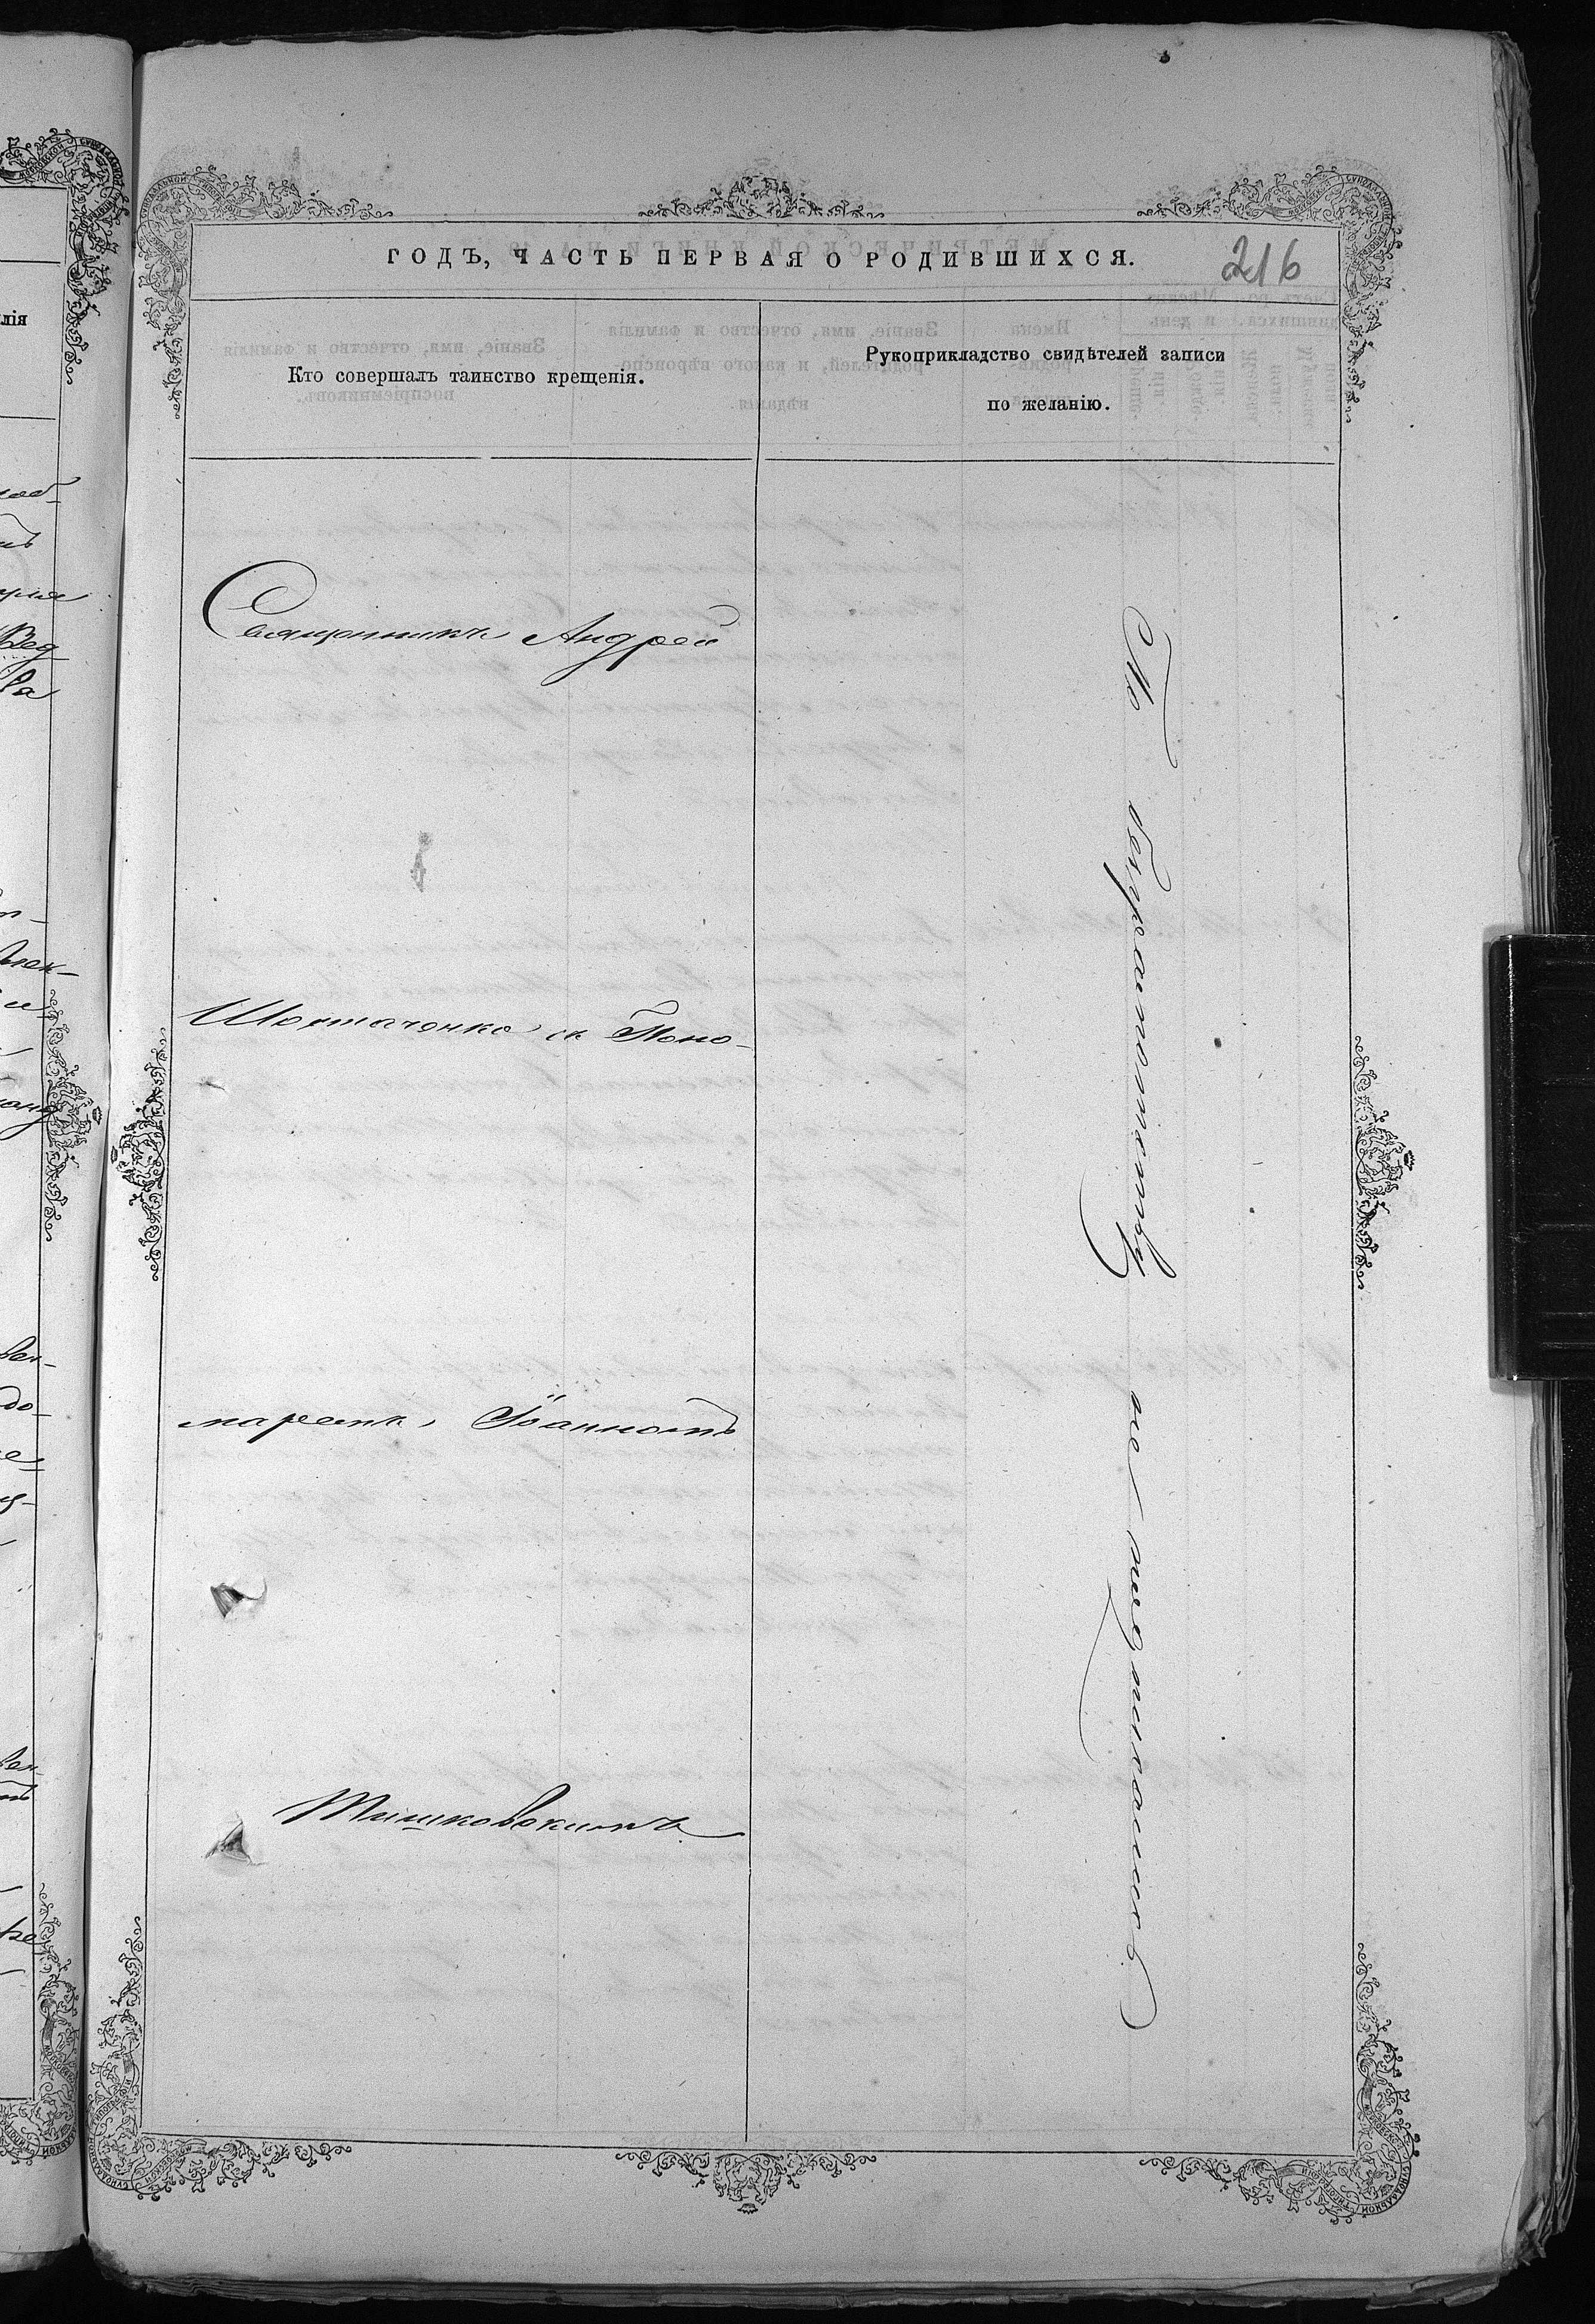 ГОДЪ, ЧАСТЬ ПЕРВАЯ О РОДИВШИХСЯ.
216
Кто совершалъ таинство крещенія.
Рукоприкладство свидѣтелей записи
по желанію.
Священникъ Андрей
съ Поно-
маремъ Іоанномъ
Тишковскимъ
По безграмотству не подписались